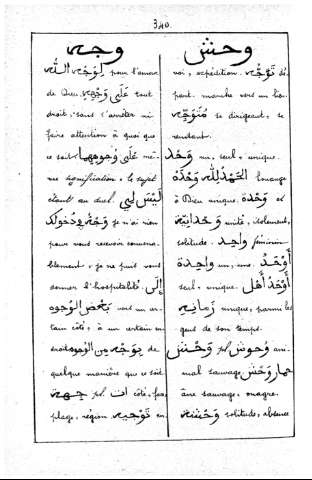 340.
وجه
لِوَجْهِ اللّٰه pour l'amour
de Dieu. عَلَى وَجْهِهِ tout
droit, sans s'arrêter ni
faire attention à quoi que
ce soit. عَلَى وُجُوهِهِما mê-
me signification, le sujet
étant au duel. لَيْسَ لِي
وَجْهُ دِخُولِكَ je n'ai rien
pour vous recevoir convena-
blement, je ne puis vous
donner l'hospitalité. إِلَى
بَعْضِ الوُجُوهِ vers un cer-
tain côté, à un certain en-
droit. بِوَجْهٍ مِن الوُجُوهِ de
quelque manière que ce soit
جِهَة pl. ات côté, pa-
plage, région. تَوْجِيه en-
وحش
voi, expédition. تَوَجُّه dé-
part, marche vers un lieu.
مُتَوَجِّه se dirigeant, se
rendant.
وَحْد un, seul, unique.
الحَمْدُ لِلّٰهِ وَحْدَهُ louange
à Dieu unique. وَحْدَة et
وَحْدَانِيَّة unité, isolement,
solitude. واحِد féminin
واحِدَة un, une. أَوْحَد
seul, unique. أَوْحَدُ أَهْلِ
زَمَانِهِ unique, parmi les
gens de son temps.
وَحْش pl. وُحُوش ani-
mal sauvage. حِمَار وَحْش
âne sauvage, onagre.
وَحْشَة solitude, absence